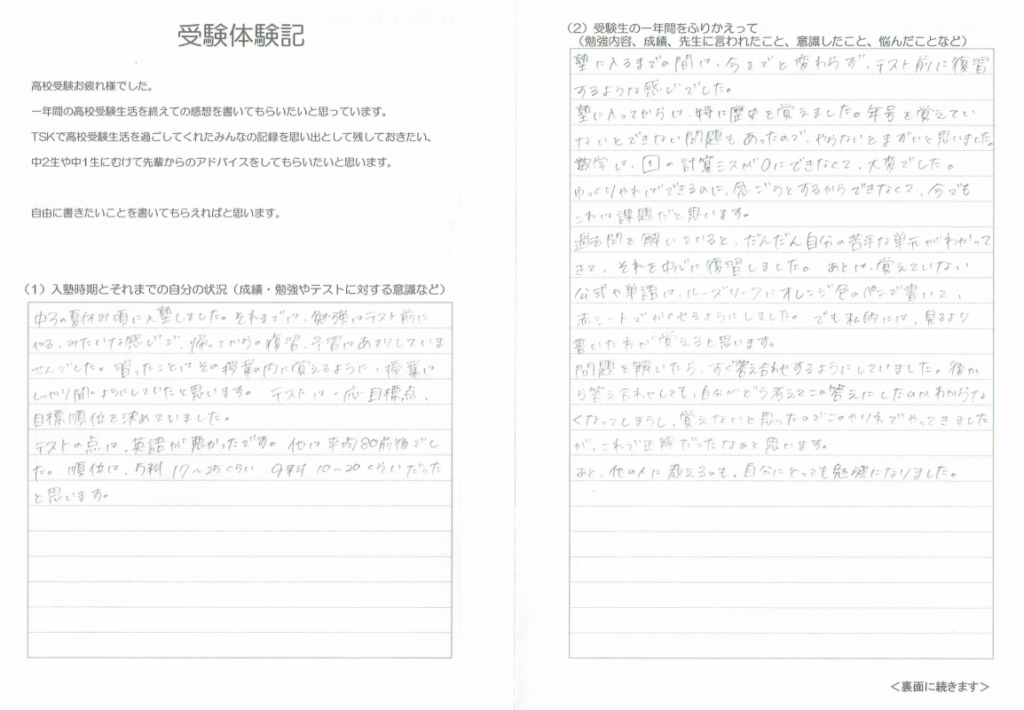 受験体験記
高校受験お疲れ様でした。
一年間の高校受験生活を終えての感想を書いてもらいたいと思っています。
TSKで高校受験生活を過ごしてくれたみんなの記録を思い出として残しておきたい、
中2生や中1生にむけて先輩からのアドバイスをしてもらいたいと思います。
自由に書きたいことを書いてもらえればと思います。
（1）入塾時期とそれまでの自分の状況（成績・勉強やテストに対する意識など）
中3の夏休み頃に入塾しました。それまでは、勉強はテスト前に
やる、みたいな感じで、帰ってからの復習、予習はあまりしていま
せんでした。習ったことはその授業の内に覚えるように、授業は
しっかり聞くようにしていたと思います。テストは一応目標点、
目標順位を決めていました。
テストの点は、英語が悪かったです。他は平均80前後でし
た。順位は、5科 17〜25くらい 9科 10〜20くらいだった
と思います。
（2）受験生の一年間をふりかえって
（勉強内容、成績、先生に言われたこと、意識したこと、悩んだことなど）
塾に入るまでの間は、今までと変わらず、テスト前に復習
するような感じでした。
塾に入ってからは、特に歴史を覚えました。年号を覚えてい
ないとできない問題もあったので、やらないとまずいと思いました。
数学は、1の計算ミスが0にできなくて、大変でした。
ゆっくりやればできるのに、急ごうとするからできなくて、今でも
これは課題だと思います。
過去問を解いていると、だんだん自分の苦手な単元がわかって
きて、それを中心に復習しました。あとは、覚えていない
公式や単語は、ルーズリーフにオレンジ色のペンで書いて、
赤シートでかくせるようにしました。でも私的には、見るより
書いた方が覚えると思います。
問題を解いたら、すぐ答え合わせするようにしていました。後か
ら答え合わせしても、自分がどう考えてこの答えにしたのかわからな
くなってしまうし、覚えないと思ったのでこのやり方でやってきました
が、これで正解だったなぁと思います。
あと、他の人に教えるのも、自分にとっても勉強になりました。
＜裏面に続きます＞